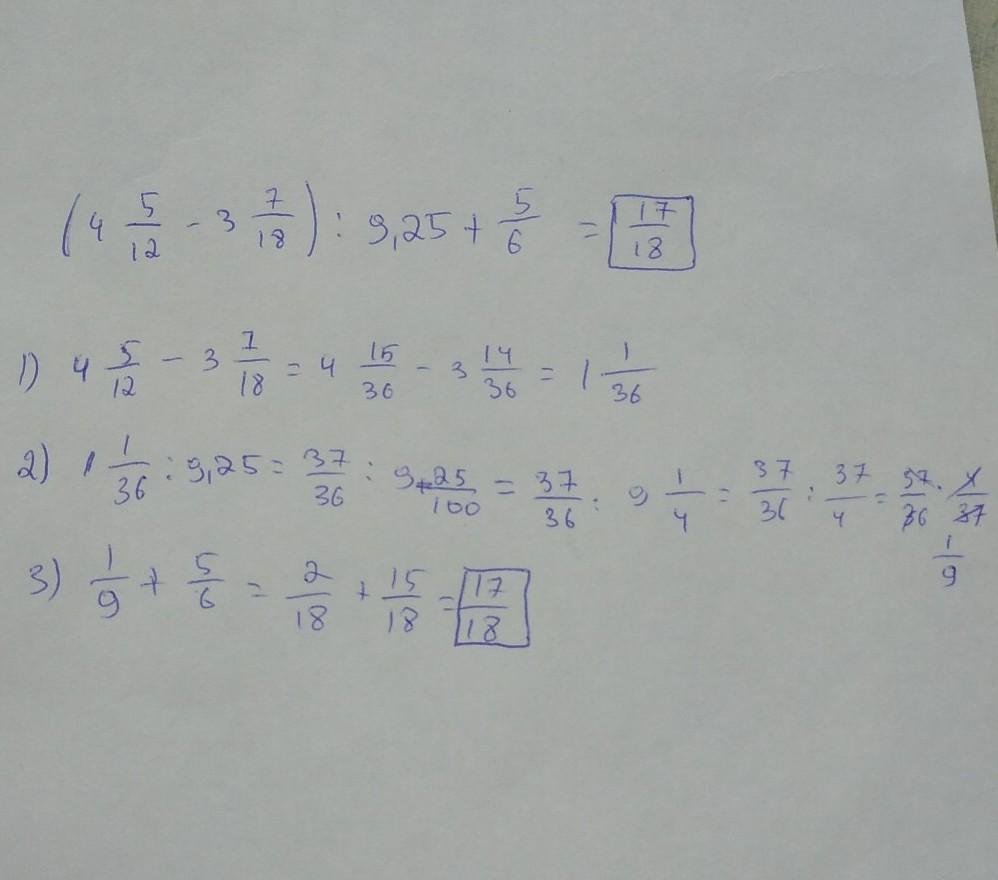 (4 5/12 - 3 7/18) : 9,25 + 5/6 = 17/18
1) 4 5/12 - 3 7/18 = 4 15/36 - 3 14/36 = 1 1/36
2) 1 1/36 : 9,25 = 37/36 : 9 25/100 = 37/36 : 9 1/4 = 37/36 : 37/4 = 37/36 · 4/37
1/9
3) 1/9 + 5/6 = 2/18 + 15/18 = 17/18